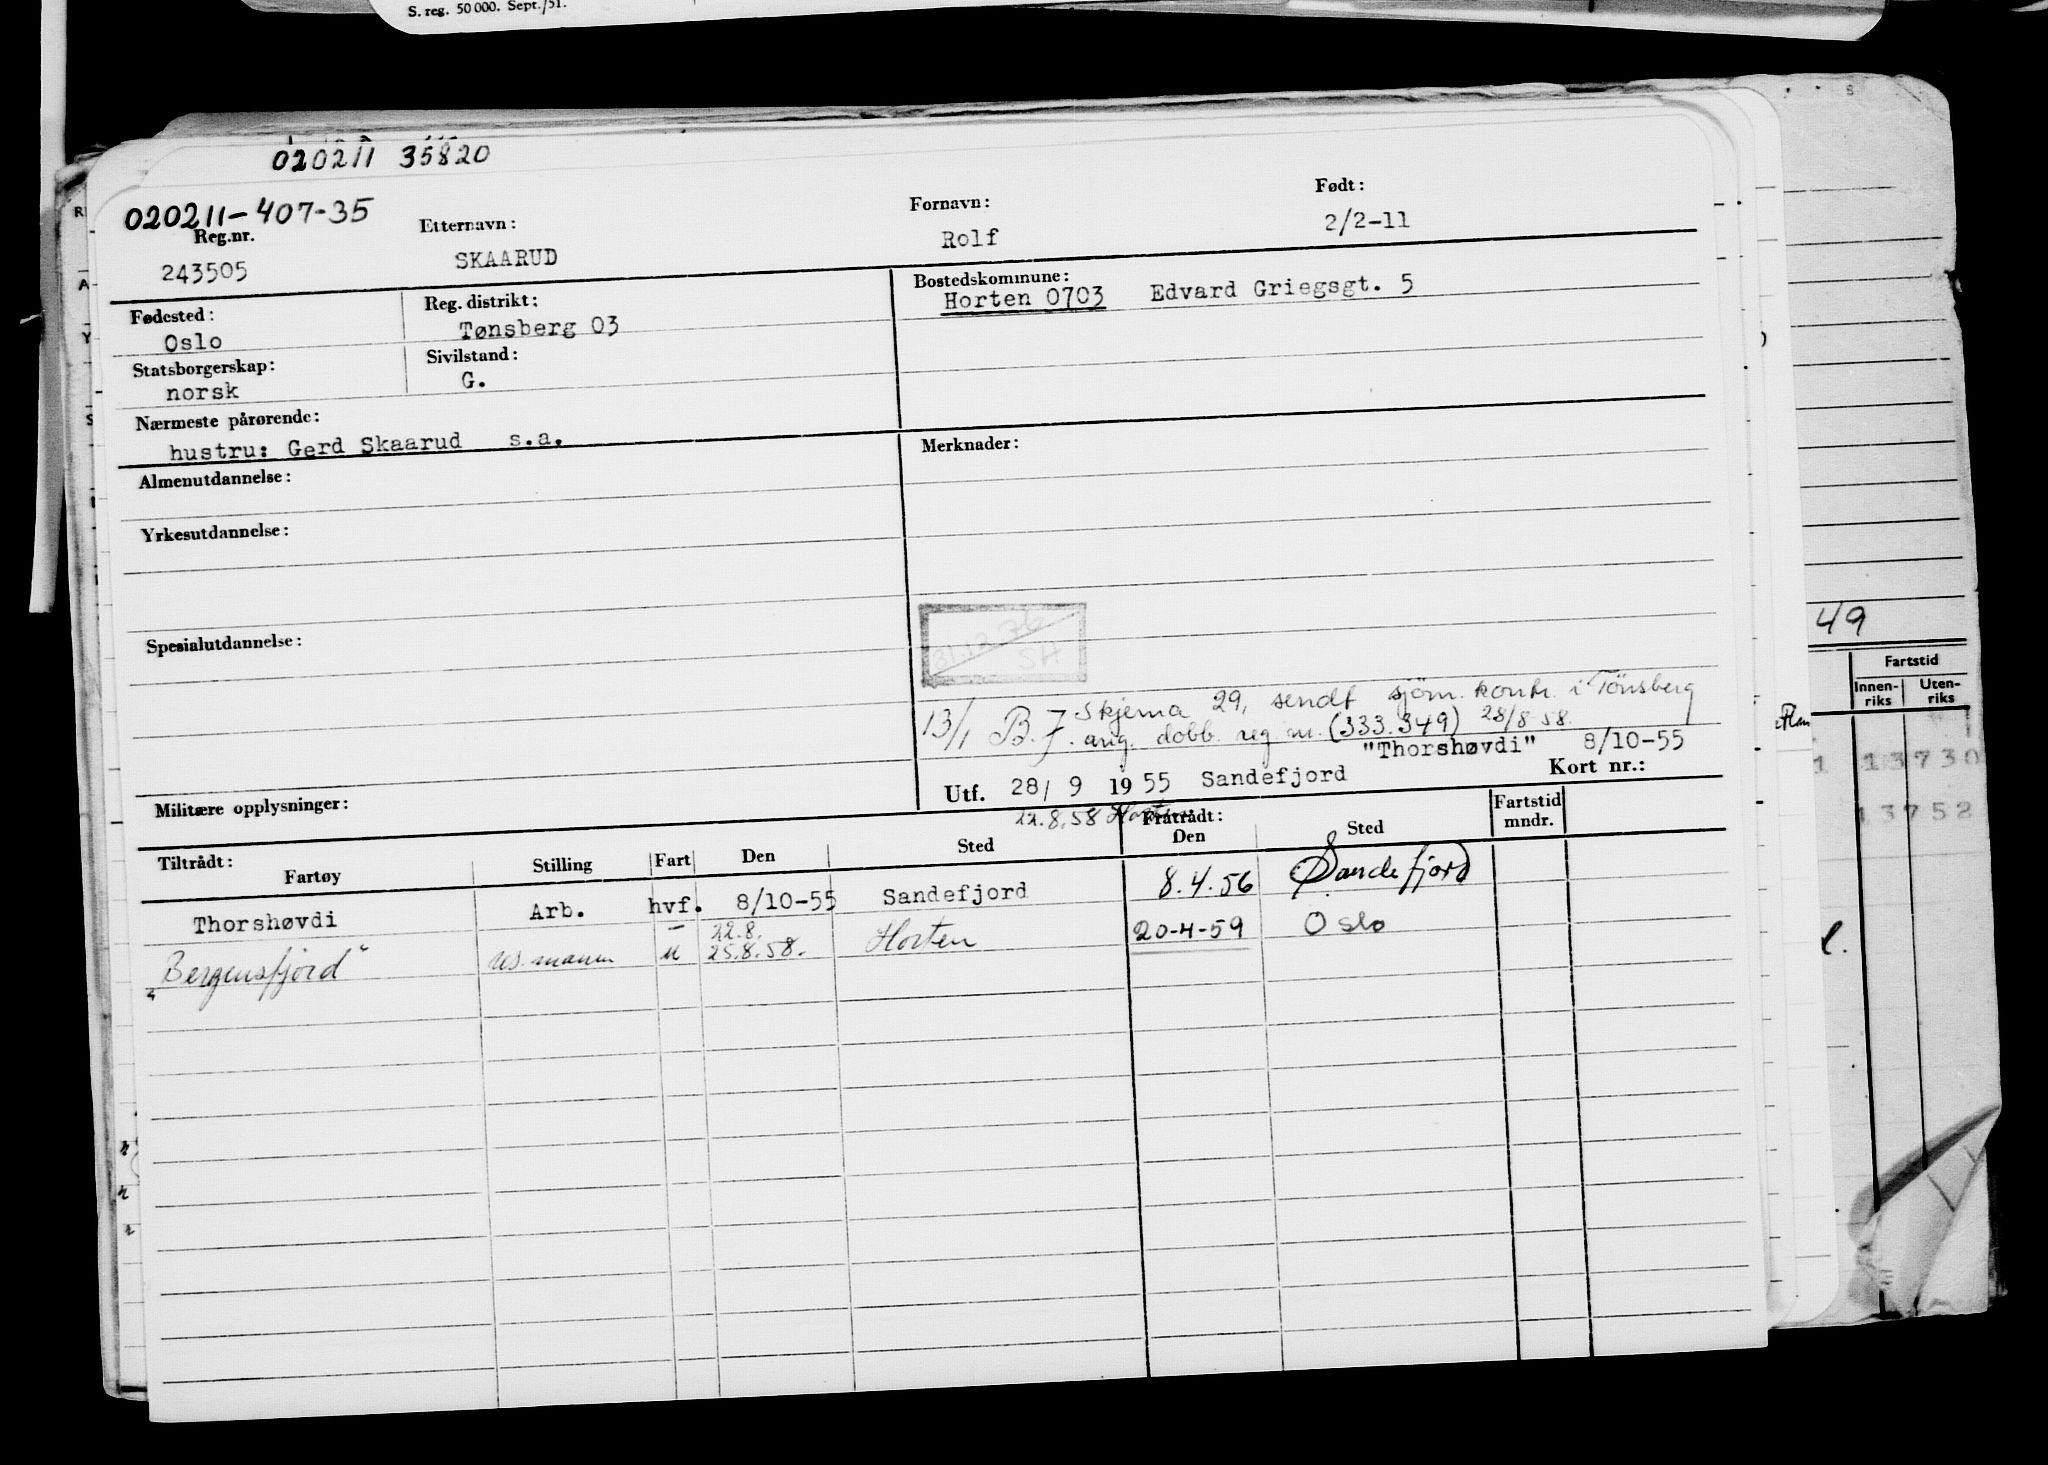 S. reg. 50 000. Sept./51.
020211 35820
020211-407-35
Reg.nr. Etternavn: Fornavn: Født:
243505 SKAARUD Rolf 2/2-11
Fødested: Reg. distrikt: Bostedskommune:
Oslo Tønsberg 03 Horten 0703 Edvard Griegsgt. 5
Statsborgerskap: Sivilstand:
norsk G.
Nærmeste pårørende:
hustru: Gerd Skaarud s.a.
Almenutdannelse: Merknader:
Yrkesutdannelse:
Spesialutdannelse:
31.12.76
SH
13/1 B.J. Skjema 29, sendt sjöm. kontr. i Tönsberg
ang. dobb. reg. nr. (333.349) 28/8 58.
"Thorshøvdi" 8/10-55
Utf. 28/ 9 1955 Sandefjord Kort nr.:
Militære opplysninger:
22.8.58 Horten
Tiltrådt: Fratrådt: Fartstid
Fartøy Stilling Fart Den Sted Den Sted mndr.
Thorshøvdi Arb. hvf. 8/10-55 Sandefjord 8.4.56 Sandefjord
22.8.
"Bergensfjord" u 25.8.58. Horten 20-4-59 Oslo
49
Fartstid
Innen-riks Uten-riks
1 13730
13752